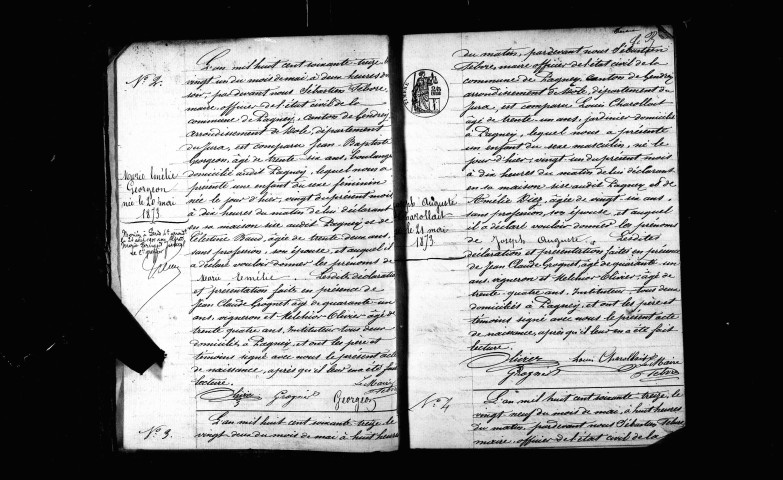 N.° 2.
L'an mil huit cent soixante treize, le
vingt un du mois de mai à deux heures du
soir, pardevant nous Sébastien Febvre,
maire, officier de l'état civil de la
commune de Pagney, canton de Gendrey
arrondissement de Dôle, département
du Jura, est comparu Jean Baptiste
Georgeon, âgé de trente six ans, boulanger
domicilié audit Pagney, lequel nous a
présenté une enfant du sexe féminin
née le jour d'hier, vingt du présent mois
à dix heures du matin de lui déclarant
en sa maison sise audit Pagney, et de
Célestine Baud, âgée de trente deux ans,
sans profession, son épouse, et auquel il
a déclaré vouloir donner les prénoms de
Marie Emélie. Lesdites déclaration
et présentation faite en présence de
Jean Claude Grognet âgé de quarante un
ans, vigneron et Melchior Olivier, âgé de
trente quatre ans, Instituteur, tous deux
domiciliés à Pagney, et ont les père et
témoins signé avec nous le présent acte
de naissance, après qu'il leur en a été fait
lecture.
Le Maire
Olivier Grognet Georgeon Febvre
Marie Emélie
Georgeon
née le 20 mai
1873
N.° 3.
L'an mil huit cent soixante treize, le
vingt deux du mois de mai à huit heures
du matin, pardevant nous Sébastien
Febvre, maire officier de l'état civil de la
commune de Pagney, canton de Gendrey
arrondissement de Dôle, département du
Jura, est comparu Louis Charollait
âgé de trente un ans, jardinier domicilié
à Pagney, lequel nous a présenté
un enfant du sexe masculin, né le
jour d'hier, vingt un du présent mois
à dix heures du matin de lui déclarant
en sa maison sise audit Pagney et de
Amélie âgée de vingt six ans,
sans profession, son épouse, et auquel
il a déclaré vouloir donner les prénoms
de Joseph Auguste. Lesdites
déclaration et présentation faites en présence
de Jean Claude Grognet âgé de quarante un
ans, vigneron et Melchior Olivier, âgé de
trente quatre ans, Instituteur, tous deux
domiciliés à Pagney, et ont les père et
témoins signé avec nous le présent acte
de naissance, après qu'il leur en a été fait
lecture.
Olivier Louis Charollait Le Maire
Grognet Febvre
Joseph Auguste
Charollait
le 21 mai
1873.
N.° 4
L'an mil huit cent soixante treize, le
vingt neuf du mois de mai, à huit heures
du matin, pardevant nous Sébastien Febvre
maire, officier de l'état civil de la